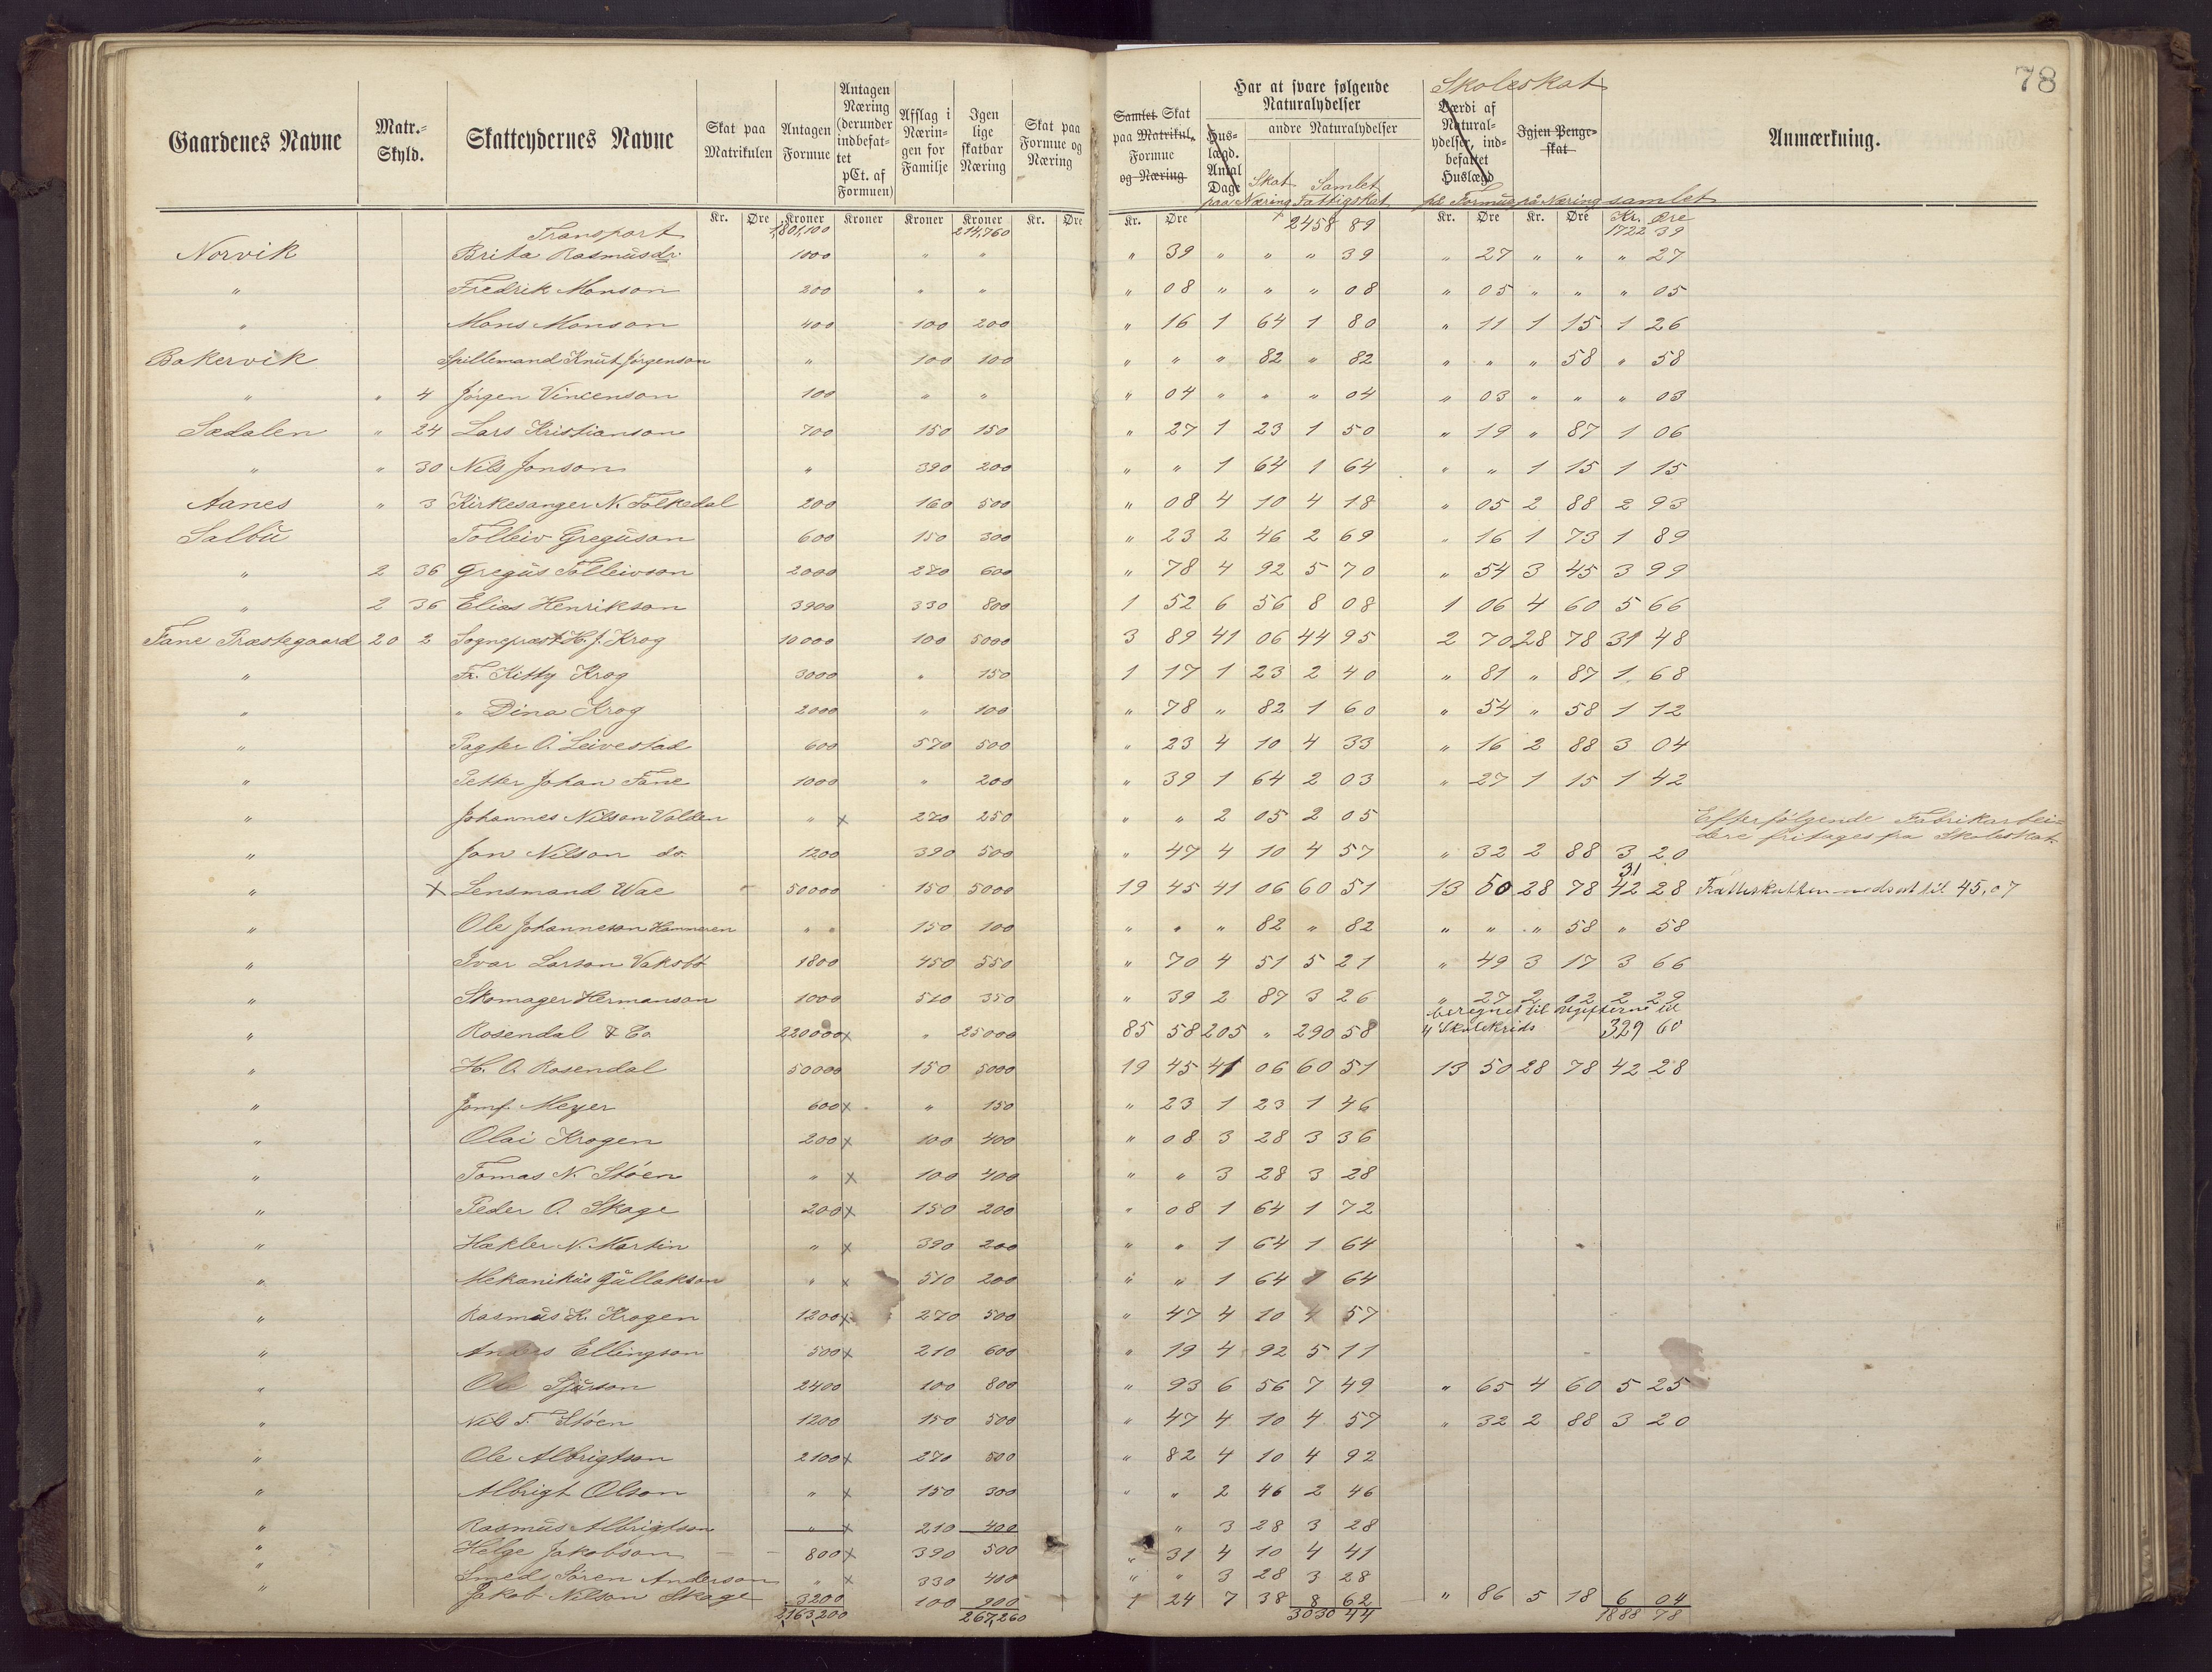 78
Gaardenes Navne | Matr.-Skyld. | Skatteydernes Navne | Skat paa Matrikulen | Antagen Formue | Antagen Næring (derunder indbefattet pCt. af Formuen) | Afslag i Næringen for Familje | Igen lige skatbar Næring | Skat paa Formue og Næring | Samlet Skat paa Matrikul, Formue og Næring | Har at svare følgende Naturalydelser | Huslægd. Antal Dage | andre Naturalydelser | Skat paa Næring | Samlet Fattigskat | Skoleskat | Værdi af Naturalydelser, indbefattet Huslægd | Igjen Pengeskat | på Formue | på Næring | samlet | Anmærkning.
Kr. | Øre | Kroner | Kroner | Kroner | Kroner | Kr. | Øre | Kr. | Øre | Kr. | Øre | Kr. | Øre | Kr. | Øre
Transport 1,801,100 214,760 2458 89 1722 39
Norvik Brita Rasmusdr. 1000 " " " 39 " " " 39 " 27 " " " 27
" Fredrik Monson 200 " " " 08 " " " 08 " 05 " " " 05
" Mons Monson 400 100 200 " 16 1 64 1 80 " 11 1 15 1 26
Bakervik Spillemand Knut Jørgenson " 100 100 " " " 82 " 82 " " " 58 " 58
" " 4 Jørgen Vincenson 100 " " " 04 " " " 04 " 03 " " " 03
Sædalen " 24 Lars Kristianson 700 150 150 " 27 1 23 1 50 " 19 " 87 1 06
" " 30 Nils Jonson " 390 200 " " 1 64 1 64 " " 1 15 1 15
Aanes " 3 Kirkesanger N. Folkedal 200 160 500 " 08 4 10 4 18 " 05 2 88 2 93
Salbu Tolleiv Greguson 600 150 300 " 23 2 46 2 69 " 16 1 73 1 89
" 2 36 Gregus Tolleivson 2000 270 600 " 78 4 92 5 70 " 54 3 45 3 99
" 2 36 Elias Henrikson 3900 330 800 1 52 6 56 8 08 1 06 4 60 5 66
Fane Præstegaard 20 2 Sognepræst H. J. Krog 10000 100 5000 3 89 41 06 44 95 2 70 28 78 31 48
" Fr. Kitty Krog 3000 " 150 1 17 1 23 2 40 " 81 " 87 1 68
" " Dina Krog 2000 " 100 " 78 " 82 1 60 " 54 " 58 1 12
" Pagter O. Leivestad 600 570 500 " 23 4 10 4 33 " 16 2 88 3 04
" Petter Johan Fane 1000 " 200 " 39 1 64 2 03 " 27 1 15 1 42
" Johannes Nilson Valden " x 270 250 " " 2 05 2 05 Efterfølgende Fabrikarbei-
dere fritages fra Skoleskat
" Jon Nilson do. 1200 390 500 " 47 4 10 4 57 " 32 2 88 3 20
" x Lensmand Wae 50000 150 5000 19 45 41 06 60 51 13 50 28 78 31 42 28 nedsat til 45,07
" Ole Johanneson Hammeren " " 150 100 " " " 82 " 82 " " " 58 " 58
" Ivar Larson Vaksbø 1800 450 550 " 70 4 51 5 21 " 49 3 17 3 66
" Skomager Hermanson 1000 510 350 " 39 2 87 3 26 " 27 2 02 2 29
beregnet til Utgifterne til
" Rosendal & Co. 220000 x " 25000 85 58 205 " 290 58 " Skolekrids 329 60
" H. O. Rosendal 50000 150 5000 19 45 41 06 60 51 13 50 28 78 42 28
" Jomf. Meyer 600 x " 150 " 23 1 23 1 46
" Olai Krogen 200 x 100 400 " 08 3 28 3 36
" Tomas N. Støen " x 100 400 " " 3 28 3 28
" Peder O. Skage 200 x 150 200 " 08 1 64 1 72
" Hækler N. Martin " x 390 200 " " 1 64 1 64
" Mekanikus Gullakson " x 510 200 " " 1 64 1 64
" Rasmus K. Krogen 1200 x 270 500 " 47 4 10 4 57
" Anders Ellingson 500 x 210 600 " 19 4 92 5 11
" Ole Sjurson 2400 100 800 " 93 6 56 7 49 " 65 4 60 5 25
" Nils T. Støen 1200 150 500 " 47 4 10 4 57 " 32 2 88 3 20
" Ole Albrigtson 2100 x 270 500 " 82 4 10 4 92
" Albrigt Olson " x 150 300 " " 2 46 2 46
" Rasmus Albrigtson " x 210 400 " 3 28 3 28
" Helge Jakobson 800 x 390 500 " 31 4 10 4 41
" Smed Søren Anderson " x 330 400 " " 3 28 3 28
" Jakob Nilson Skage 3200 100 900 1 24 7 38 8 62 " 86 5 18 6 04
2,163,200 267,260 3030 44 1888 78